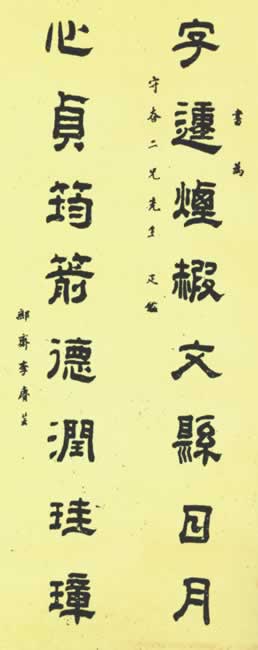 字煙文縣日月
書為
守春二兄先生
心貞筠箭德潤珪璋
鄦齋李賡芸